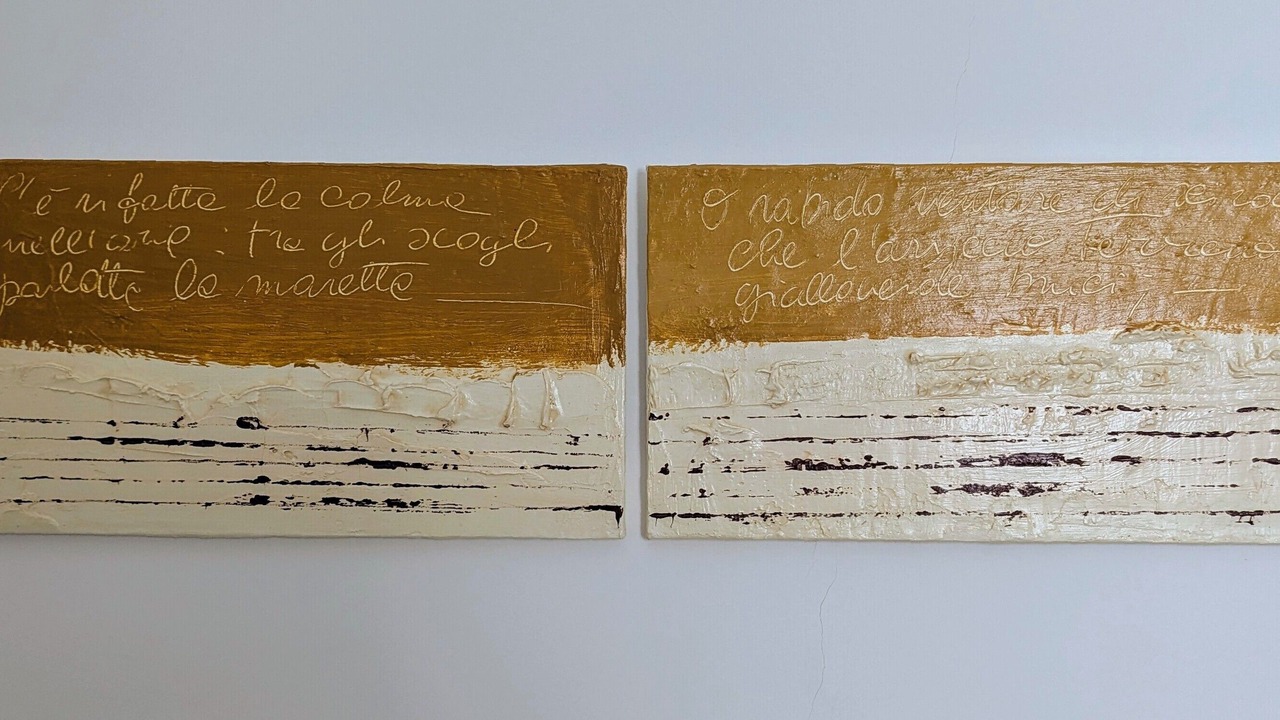 S'è rifatta la calma
nell'aria : tra gli scogli
parlotta la maretta
O rabido ventare di sciroc
che l'arsiccio terreno
gialloverde bruci,